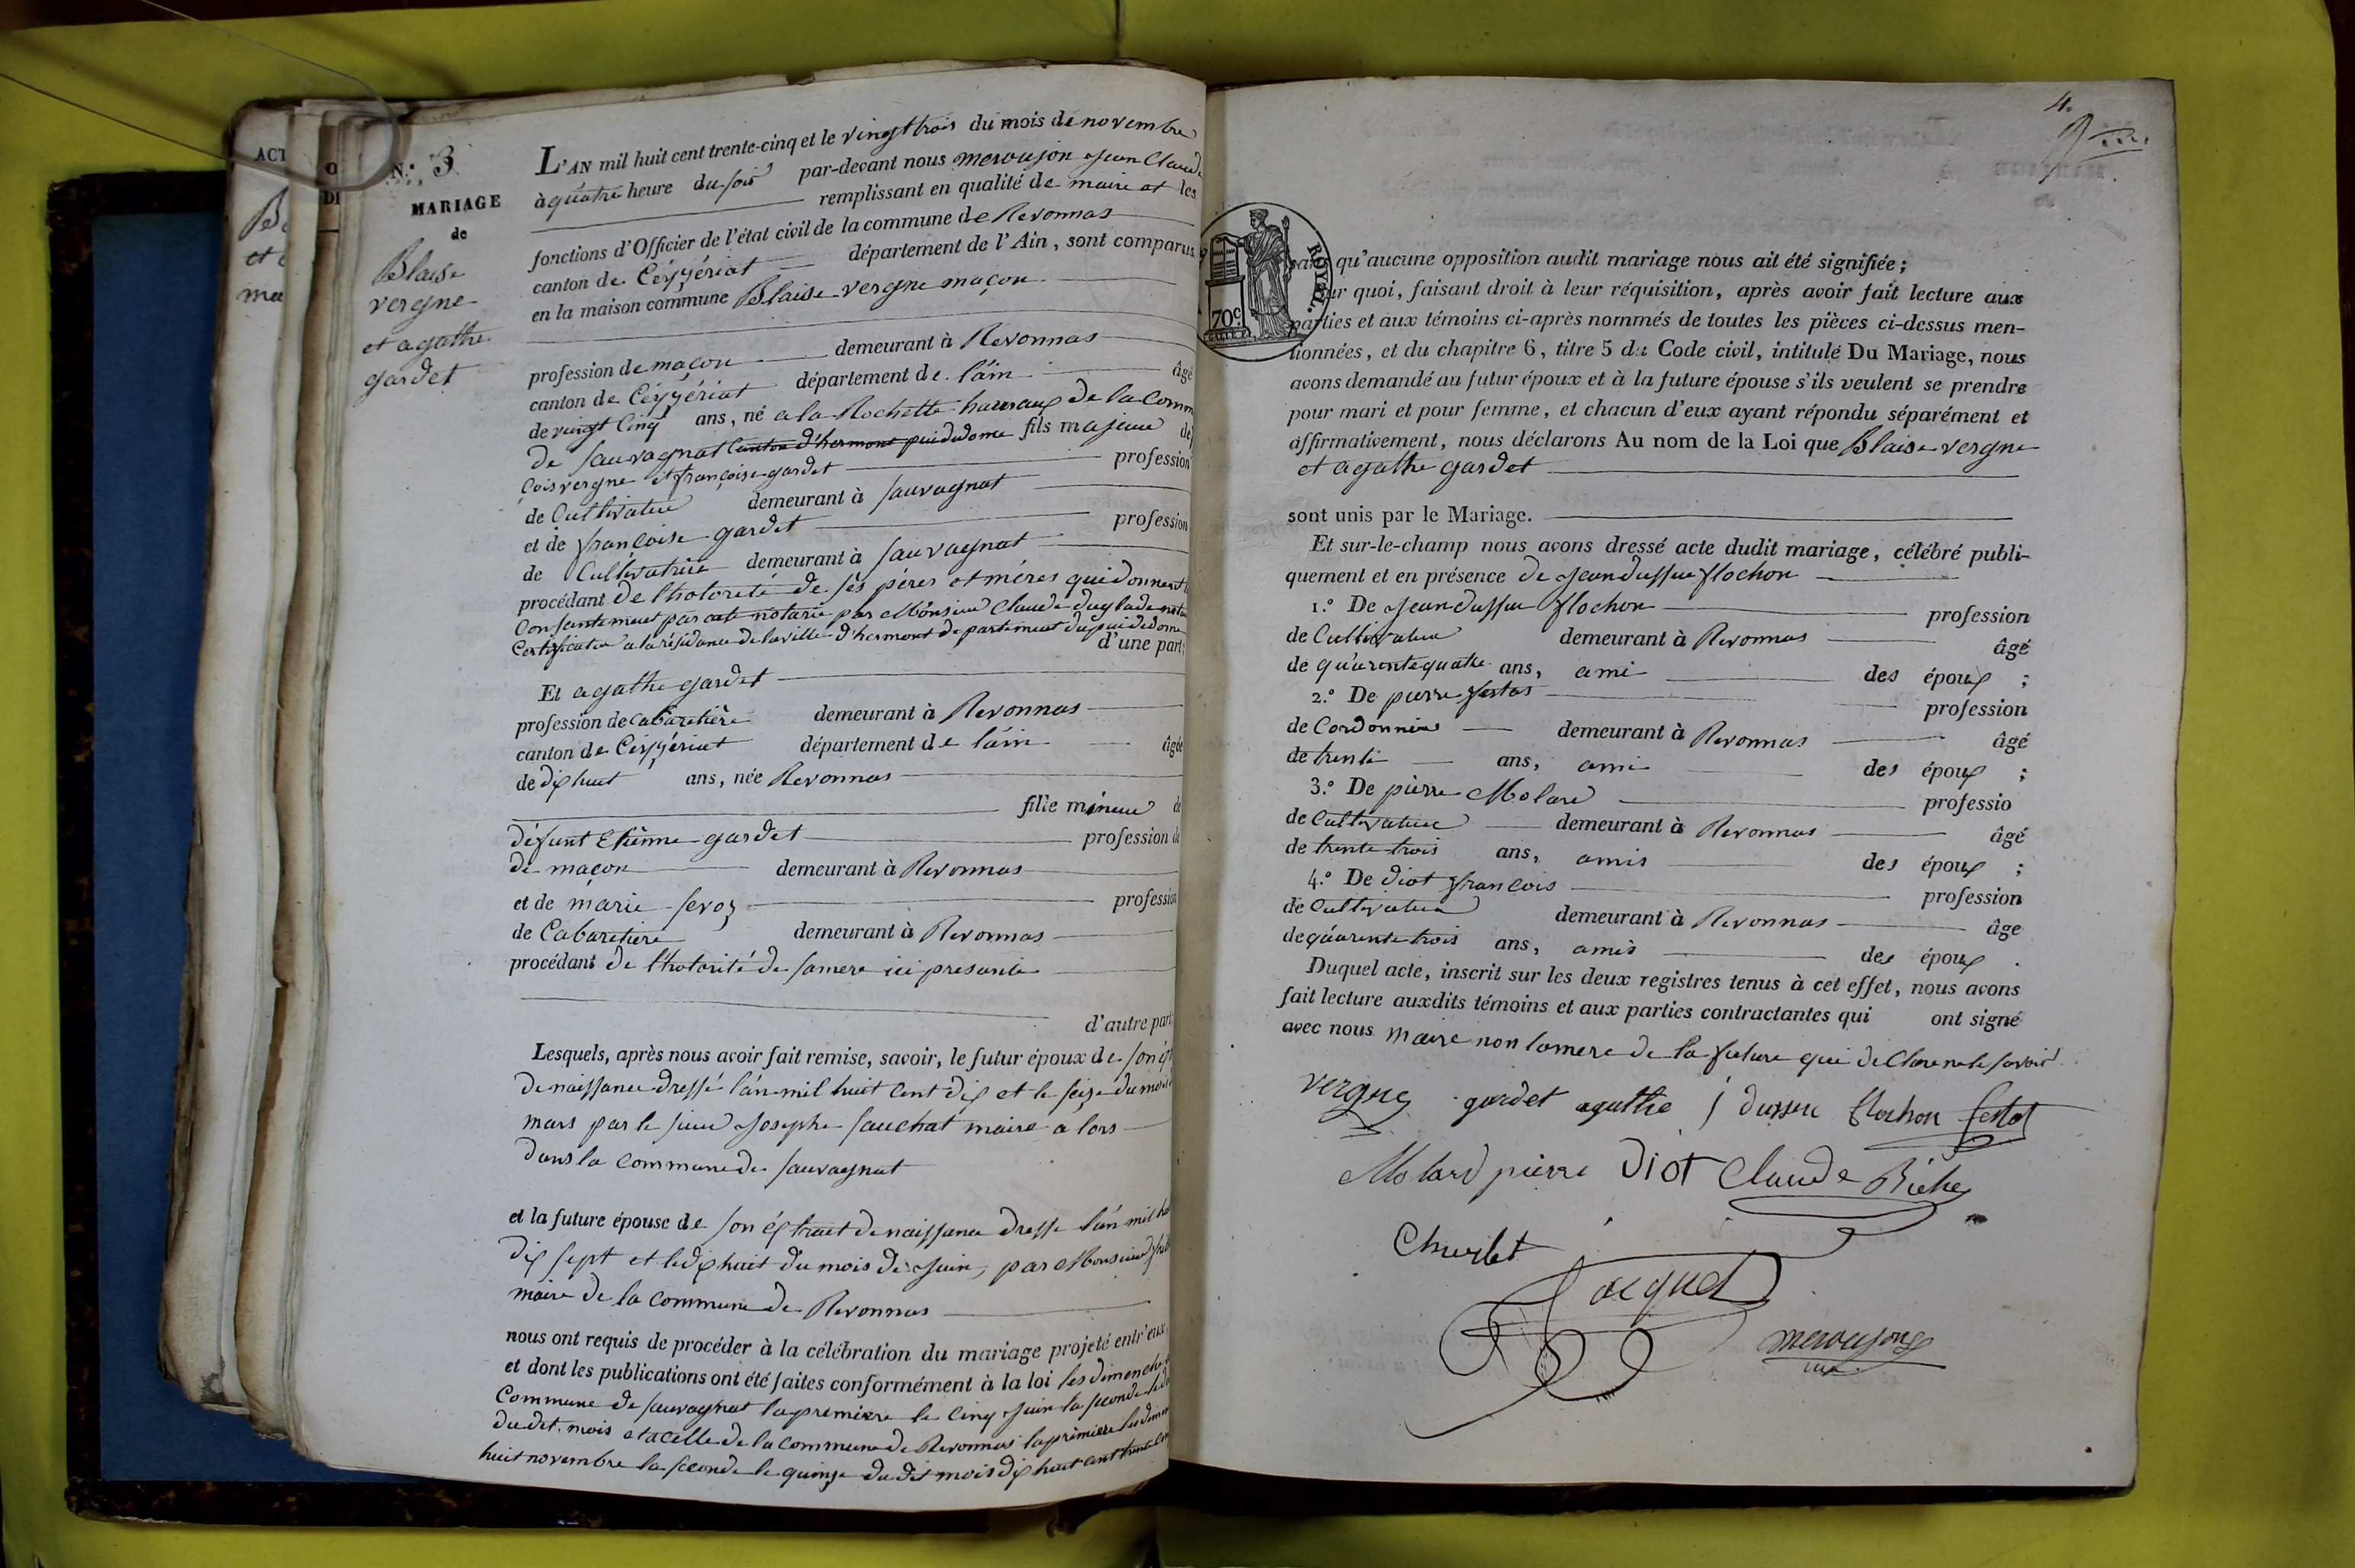 ACT
Be
et
ma
O
DI
N.º 3
MARIAGE
de
Blaise
vergne
et agathe
gardet
L'AN mil huit cent trente-cinq et le vingt trois du mois de novembre
à quatre heure du soir par-devant nous meroujon jean Claude
remplissant en qualité de maire et les
fonctions d'Officier de l'état civil de la commune de Revonnas
canton de Ceyzériat département de l'Ain, sont comparus
en la maison commune Blaise vergne maçon
profession de maçon demeurant à Revonnas
canton de Ceyzériat département de l'ain âgé
de vingt Cinq ans, né a la Rochette hameaux de la Comm
de Sauvagnat Canton d'hermont puidedome fils majeur de
çois vergne et françoise gardet profession
de Cultivateur demeurant à Sauvagnat
et de françoise gardet profession
de Cultivatrice demeurant à Sauvagnat
procédant de l'hotorité de sés péres et méres qui donnent
Consentement par acte notarié par Monsieur Claude
Certificateur a la résidance de la ville d'hermont departement du puidedome
d'une part;
Et agathe gardet
profession de Cabaretière demeurant à Revonnas
canton de Ceyzériat département de l'ain âgée
de dix huit ans, née Revonnas
fille mineure de
défunt Etiènne gardet profession de
de maçon demeurant à Revonnas
et de marie Sevoz profession
de Cabaretière demeurant à Revonnas
procédant de l'hotorité de sa mere ici presante
d'autre part
Lesquels, après nous avoir fait remise, savoir, le futur époux de son éx
de naissance dressé l'an mil huit Cent dix et le seize du mois
mars par le sieur Josephe Sauchat maire a lors
dans la Commune de Sauvagnat
et la future épouse de son éxtrait de naissance dresse l'an mil hu
dix sept et le dix huit du mois de Juin, par Monsieur
maire de la Commune de Revonnas
nous ont requis de procéder à la célébration du mariage projeté entr'eux,
et dont les publications ont été faites conformément à la loi les dimenche
Commune de Sauvagnat la premiere le Cinq Juin la seconde le
dudit mois et a celle de la Commune de Revonnas la prémiere
huit novembre la seconde le quinze du dit mois dix huit cent trente
4.
ROYAL.
70c
sans qu'aucune opposition audit mariage nous ait été signifiée;
ur quoi, faisant droit à leur réquisition, après avoir fait lecture aux
parties et aux témoins ci-après nommés de toutes les pièces ci-dessus men-
tionnées, et du chapitre 6, titre 5 du Code civil, intitulé Du Mariage, nous
avons demandé au futur époux et à la future épouse s'ils veulent se prendre
pour mari et pour femme, et chacun d'eux ayant répondu séparément et
affirmativement, nous déclarons Au nom de la Loi que Blaise vergne
et agathe gardet
sont unis par le Mariage.
Et sur-le-champ nous avons dressé acte dudit mariage, célébré publi-
quement et en présence de Jean dussur flochon
1.º De Jean dussur flochon profession
de Cultivateur demeurant à Revonnas âgé
de quarente quatre ans, ami des époux ;
2.º De pierre festas profession
de Cordonnier demeurant à Revonnas âgé
de trente ans, ami des époux ;
3.º De pièrre Molard professio
de Cultivateur demeurant à Revonnas âgé
de trente trois ans, amis des époux ;
4.º De diot françois profession
de Cultivateur demeurant à Revonnas âge
de quarente trois ans, amis des époux .
Duquel acte, inscrit sur les deux registres tenus à cet effet, nous avons
fait lecture auxdits témoins et aux parties contractantes qui ont signé
avec nous maire non la mere de la future qui de Clare ne le savoir
vergne gardet agathe j dussur flochon festas
Molard pierre Diot Claude Biche
Churlet
Jacquet
meroujon